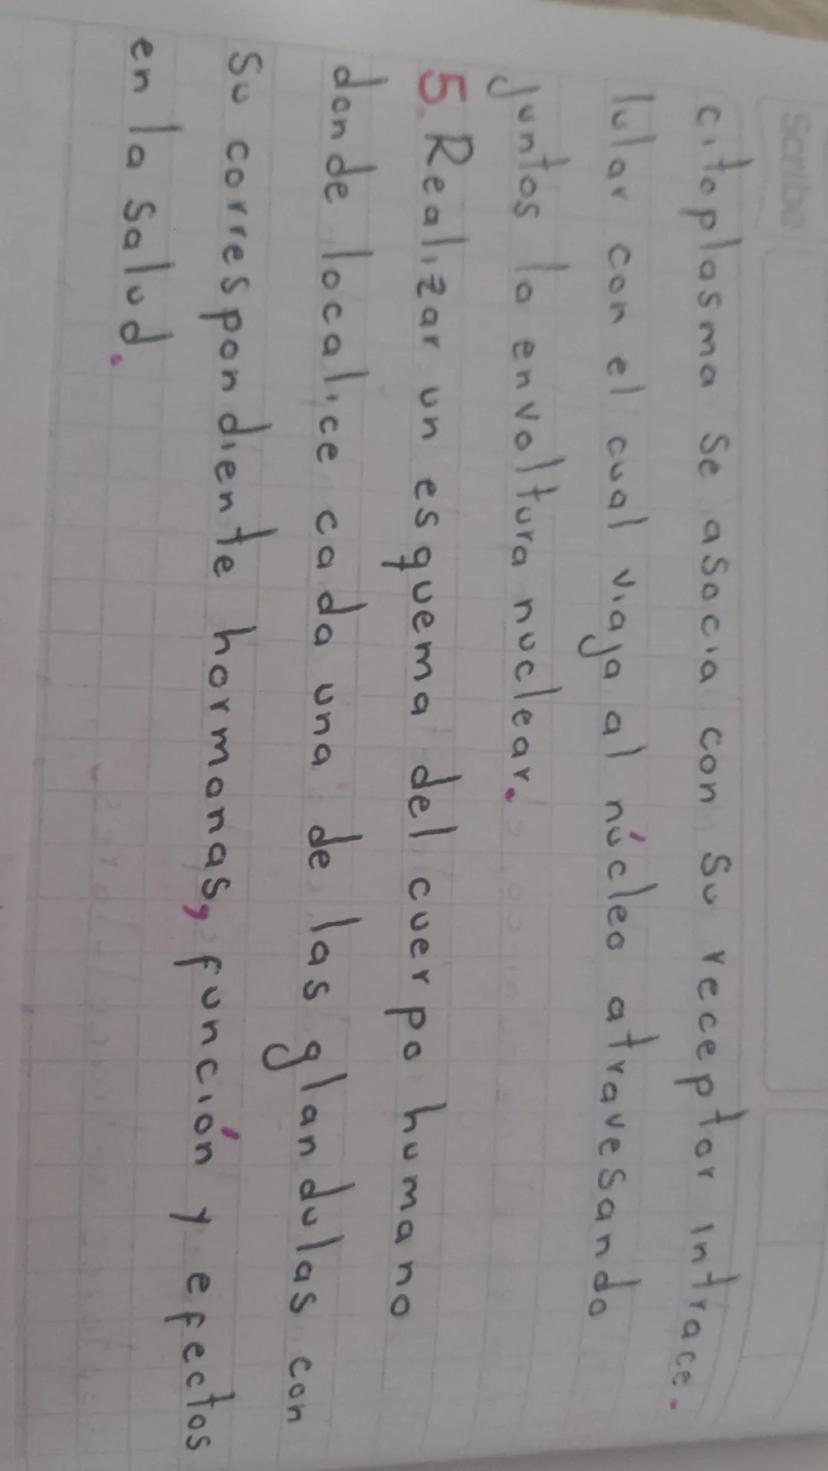 Scribe
citoplasma se asocia con su receptor intrace-
lular con el cual viaja al núcleo atravesando
juntos la envoltura nuclear.
5. Realizar un esquema del cuerpo humano
donde localice cada una de las glandulas con
su correspondiente hormonas, función y efectos
en la salud.